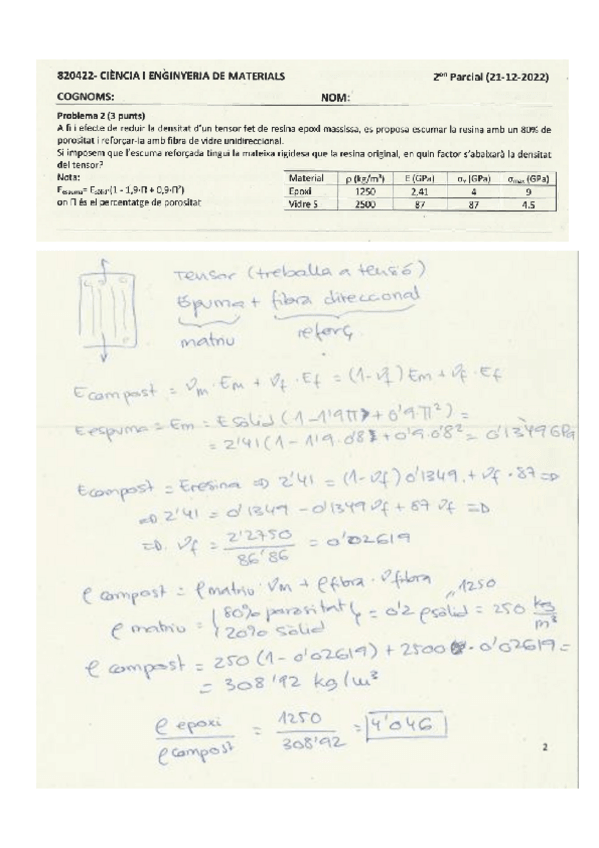 820422- CIÈNCIA I ENGINYERIA DE MATERIALS 2on Parcial (21-12-2022)
COGNOMS: NOM:
Problema 2 (3 punts)
A fi i efecte de reduir la densitat d'un tensor fet de resina epoxi massissa, es proposa escumar la resina amb un 80% de
porositat i reforçar-la amb fibra de vidre unidireccional.
Si imposem que l'escuma reforçada tingui la mateixa rigidesa que la resina original, en quin factor s'abaixarà la densitat
del tensor?
Nota:
Eescuma= Esòlid·(1 - 1,9·Π + 0,9·Π²)
on Π és el percentatge de porositat
Material ρ (kg/m³) E (GPa) σy (GPa) σmax (GPa)
Epoxi 1250 2,41 4 9
Vidre S 2500 87 87 4.5
Tensor (treballa a tensió)
Espuma + fibra direccional
matriu reforç
Ecompost = Vm · Em + Vf · Ef = (1-Vf) Em + Vf · Ef
Eespuma = Em = Esolid (1 - 1'9Π + 0'9·Π²) =
= 2'41 (1 - 1'9·0'8 + 0'9·0'8² = 0'1349 GPa
Ecompost = Eresina => 2'41 = (1-Vf) 0'1349 + Vf · 87 =>
=> 2'41 = 0'1349 - 0'1349 Vf + 87 Vf =>
=> Vf = 2'2750 / 86'86 = 0'02619
ρ compost = ρ matriu · Vm + ρ fibra · Vfibra
ρ matriu = { 80% porositat 20% sòlid } = 0'2 ρsolid = 250 kg/m³
1250
ρ compost = 250 (1 - 0'02619) + 2500 · 0'02619 =
= 308'92 kg/m³
ρ epoxi / ρ compost = 1250 / 308'92 = 4'046
2